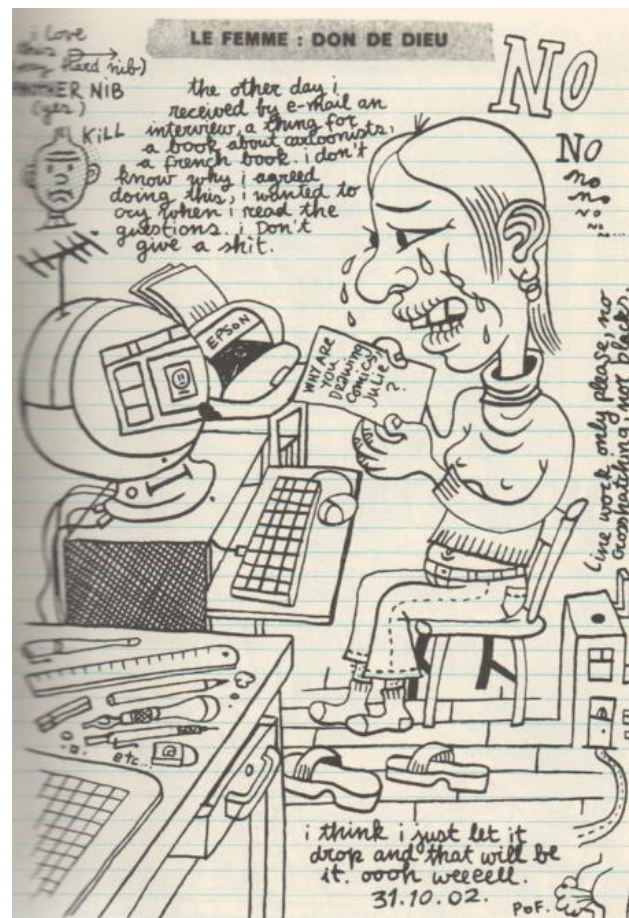 i love
this
very hard nib)
ANOTHER NIB
(yes)
KILL
LE FEMME : DON DE DIEU
NO
NO
no
no
no
no
no...
the other day i
received by e-mail an
interview, a thing for
a book about cartoonists,
a french book. i don't
know why i agreed
doing this, i wanted to
cry when i read the
questions. i Don't
give a shit.
EPSON
WHY ARE
YOU
DRAWING
COMICS,
JULIE
?
Line work only please, no
crosshatching, nor blacks,
etc...
i think i just let it
drop and that will be
it. oooh weeeell.
31.10.02.
POF.